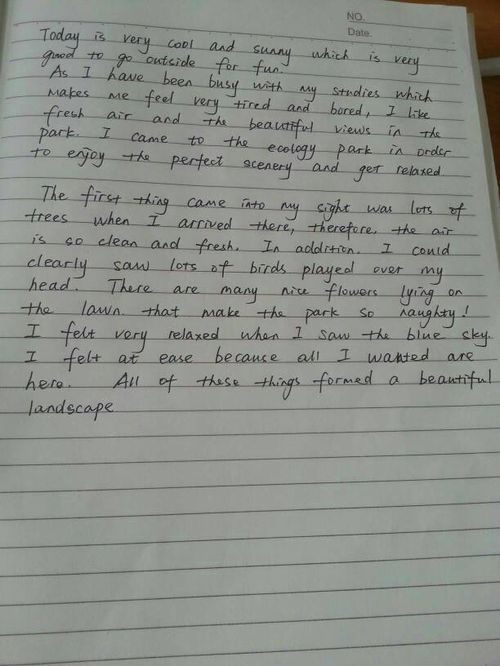 NO.
Date.
Today is very cool and sunny which is very
good to go outside for fun.
As I have been busy with my studies which
makes me feel very tired and bored, I like
fresh air and the beautiful views in the
park. I came to the ecology park in order
to enjoy the perfect scenery and get relaxed
The first thing came into my sight was lots of
trees when I arrived there, therefore, the air
is so clean and fresh. In addition. I could
clearly saw lots of birds played over my
head. There are many nice flowers lying on
the lawn. that make the park so naughty!
I felt very relaxed when I saw the blue sky.
I felt at ease because all I wanted are
here. All of these things formed a beautiful
landscape